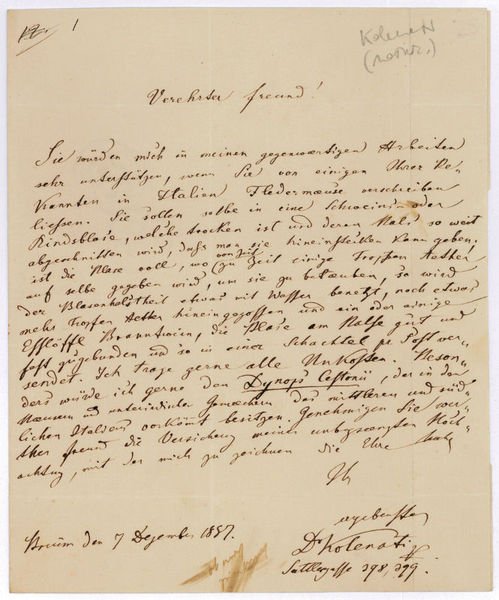 1
Kolenati
Verehrter Freund!
Sie würden mich in meinen gegenwärtigen Arbeiten
sehr unterstützen, wenn Sie von einigen Ihrer Be-
kannten in Italien Fledermäuse verschreiben
liessen. Sie sollen selbe in eine Schweins- oder
Rindsblase, welche trocken ist und deren Hals so weit
abgeschnitten wird, dass man sie hineinstellen kann geben,
ist die Blase voll, wo von Zeit zu Zeit einige Tropfen Aether
auf selbe gegeben wird, um sie zu betäuben, so wird
der Blasenhalstheil etwas mit Wasser benetzt, noch etwas
mehr Tropfen Aether hineingegossen und ein oder einige
Esslöffel Branntwein, die Blase am Halse gut und
fest zugebunden und so in einer Schachtel pr Post ver-
sendet. Ich trage gerne alle Unkosten. Beson-
ders würde ich gerne den Dynops Cestonii, der in den
Häusern und unterirdischen Gemächern des mittleren und süd-
lichen Italiens vorkömmt besitzen. Genehmigen Sie ver-
ther Freund die Versicherung meiner unbegrenzten Hoch-
achtung, mit der mich zu zeichnen die Ehre habe
Ihr
ergebenster
Brünn den 7 Dezember 1857.
Dr Kolenati
Sattlergasse 298, 299